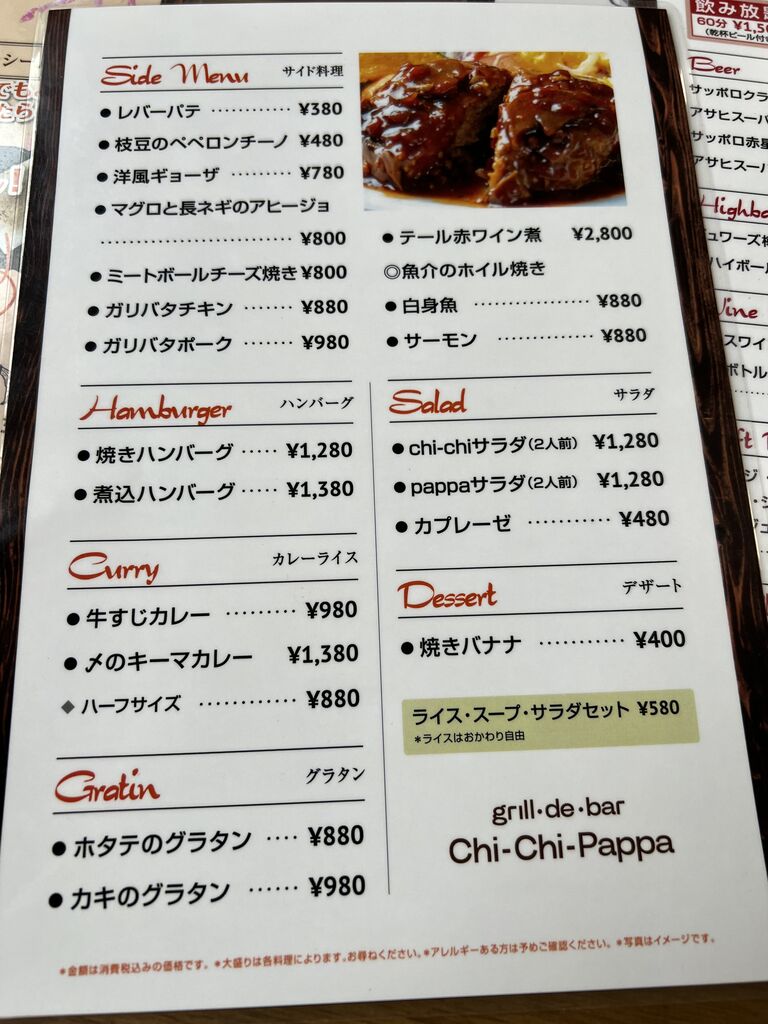 Side Menu サイド料理
●レバーパテ ………… ¥380
●枝豆のペペロンチーノ ¥480
●洋風ギョーザ ……… ¥780
●マグロと長ネギのアヒージョ
…………………… ¥800
●ミートボールチーズ焼き ¥800
●ガリバタチキン ……. ¥880
●ガリバタポーク ……. ¥980
●テール赤ワイン煮 ¥2,800
◎魚介のホイル焼き
●白身魚 …………… ¥880
●サーモン ………… ¥880
Hamburger ハンバーグ
●焼きハンバーグ ····· ¥1,280
●煮込ハンバーグ ····· ¥1,380
Curry カレーライス
●牛すじカレー ……… ¥980
●〆のキーマカレー ¥1,380
◆ハーフサイズ ………… ¥880
Gratin グラタン
●ホタテのグラタン ···· ¥880
●カキのグラタン ······ ¥980
Salad サラダ
●chi-chiサラダ(2人前) ¥1,280
●pappaサラダ(2人前) ¥1,280
●カプレーゼ ………… ¥480
Dessert デザート
●焼きバナナ ………… ¥400
ライス・スープ・サラダセット ¥580
*ライスはおかわり自由
grill・de・bar
Chi-Chi-Pappa
*金額は消費税込みの価格です。 *大盛りは各料理によります。お尋ねください。*アレルギーある方は予めご確認ください。 *写真はイメージです。
飲み放
60分 ¥1,5
(乾杯ビール付
Beer
サッポロクラ
アサヒスーパ
サッポロ赤星
アサヒスーパ
Highba
ハイボール
ine
スワイ
ボトル